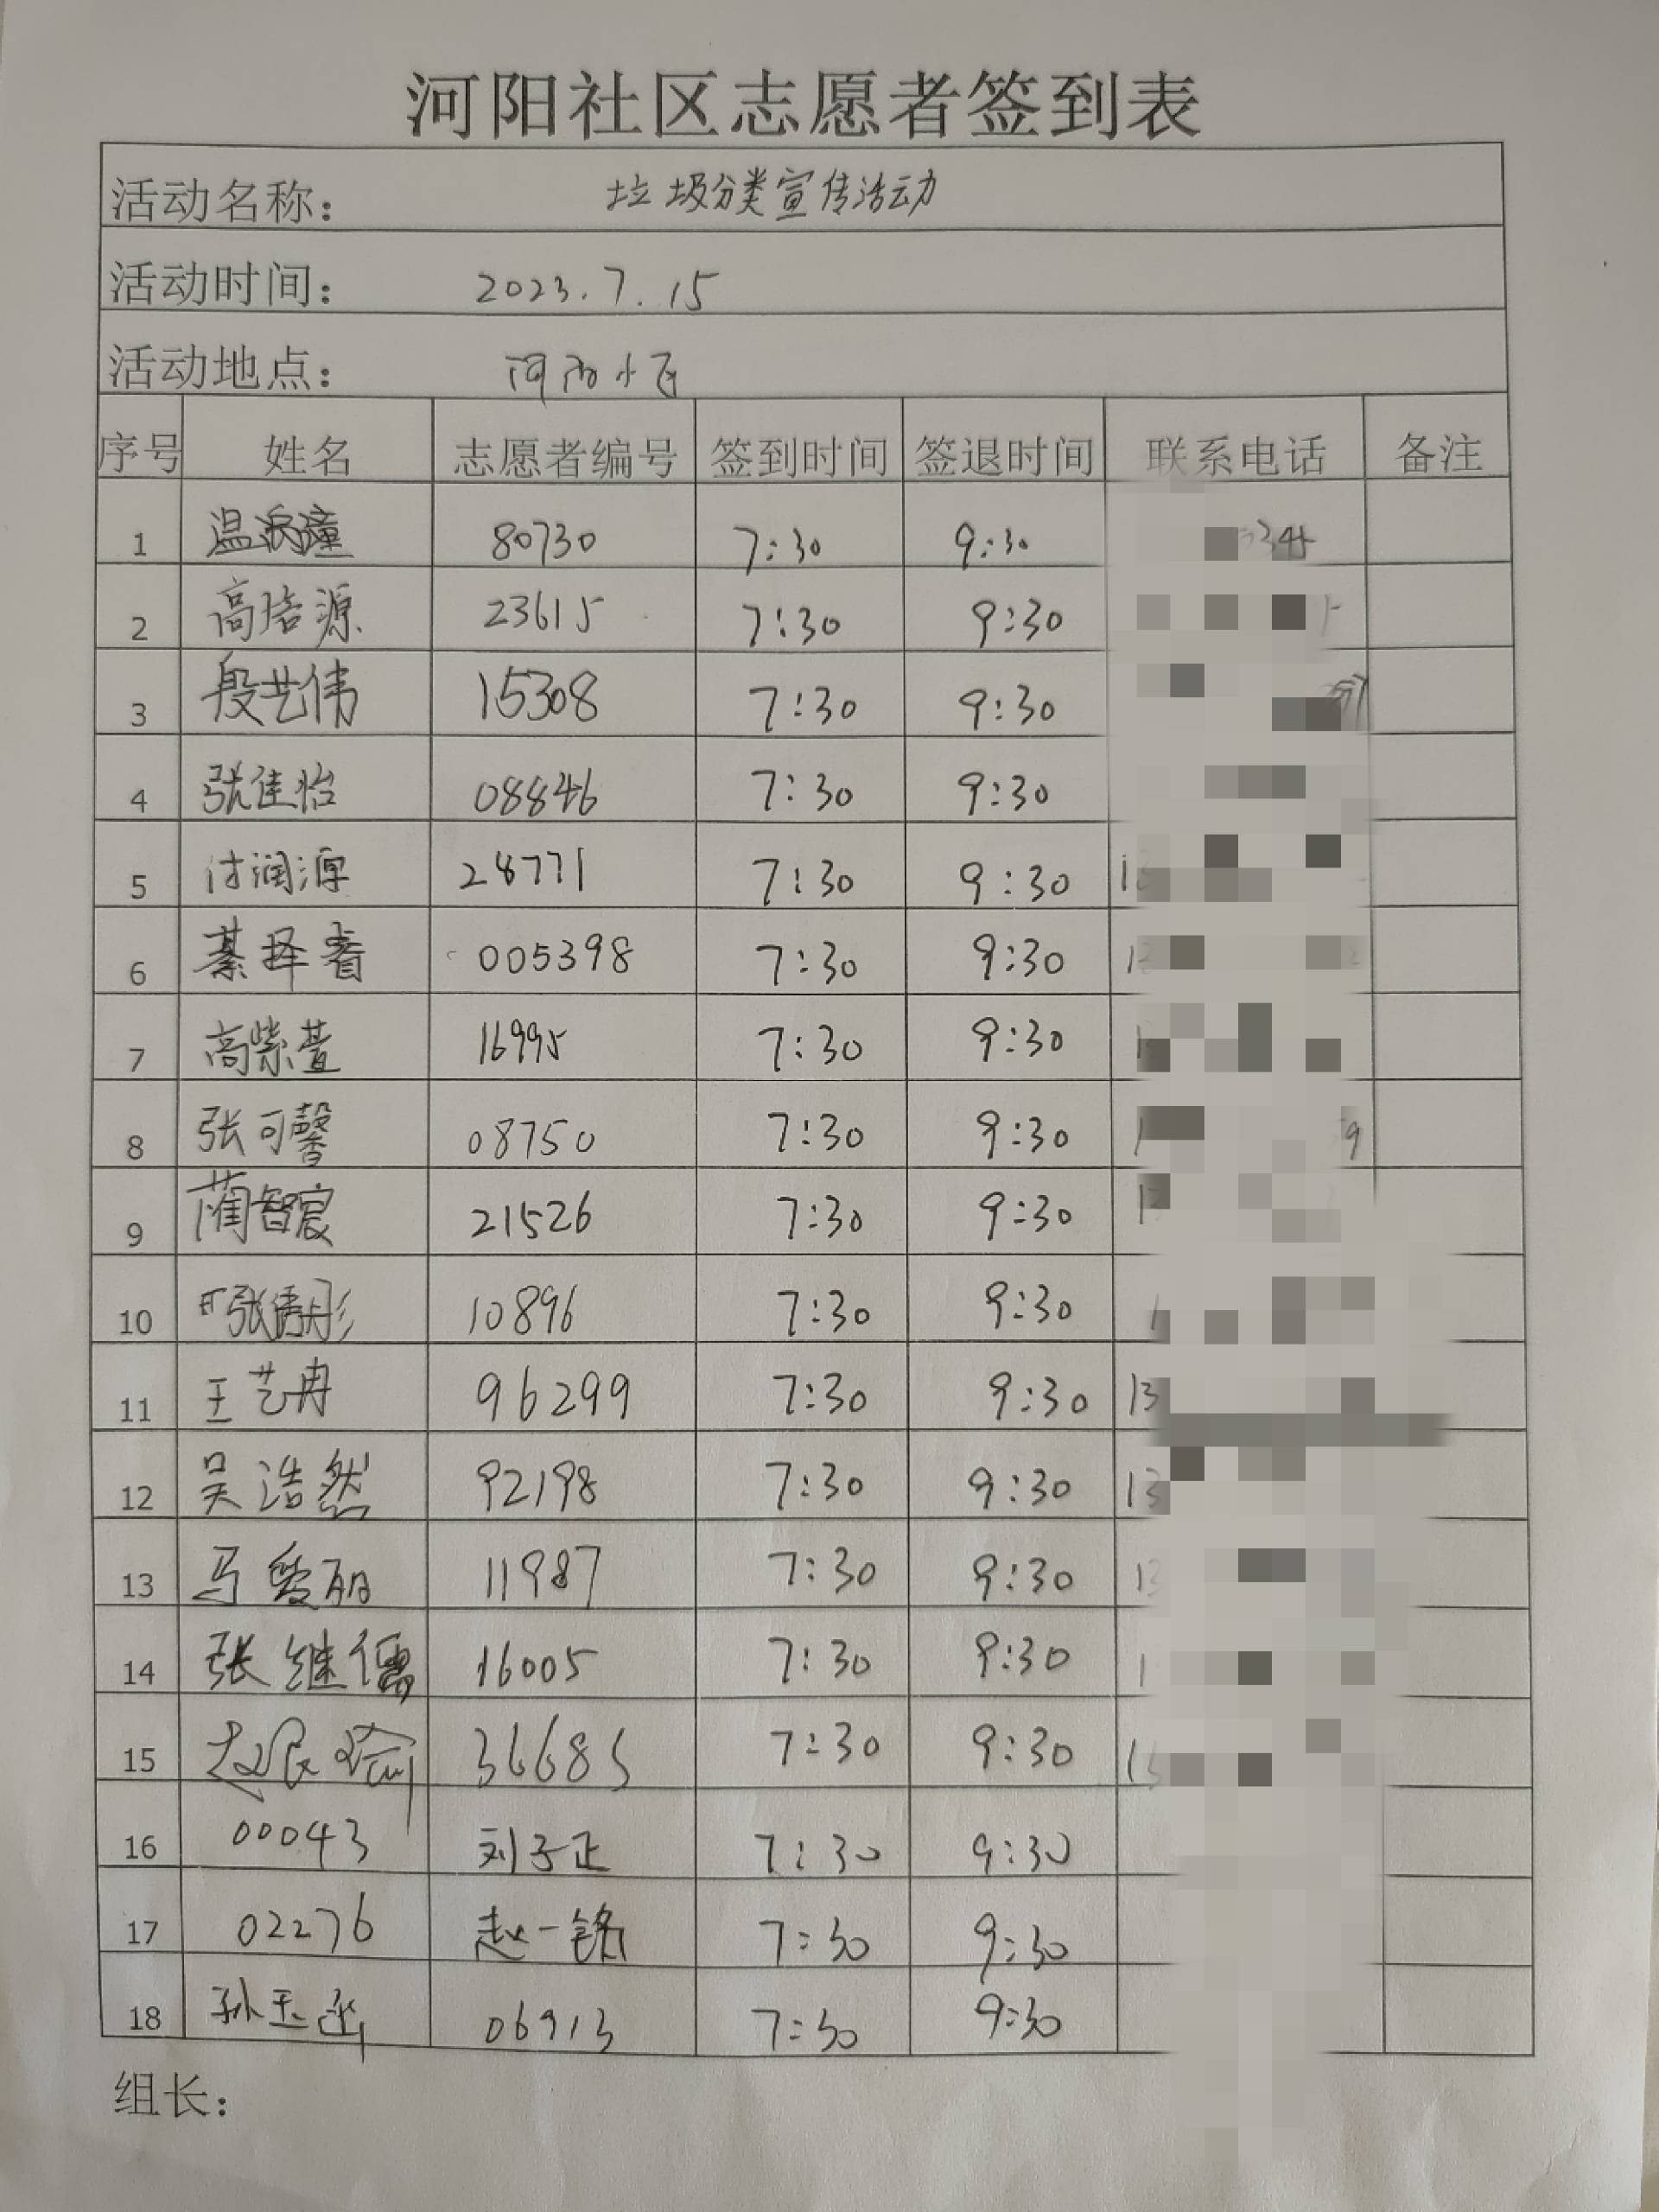 河阳社区志愿者签到表
活动名称： 垃圾分类宣传活动
活动时间： 2023.7.15
活动地点： 河阳小区
序号 姓名 志愿者编号 签到时间 签退时间 联系电话 备注
1 温 80730 7:30 9:30
2 高培源 23615 7:30 9:30
3 段艺伟 15308 7:30 9:30
4 张佳怡 08846 7:30 9:30
5 付润源 28771 7:30 9:30
6 綦择睿 005398 7:30 9:30
7 高紫萱 16995 7:30 9:30
8 张可馨 08750 7:30 9:30
9 蔺智宸 21526 7:30 9:30
10 张 彤 10896 7:30 9:30
11 王艺冉 96299 7:30 9:30 13
12 吴浩然 92198 7:30 9:30 13
13 马爱丽 11987 7:30 9:30 13
14 张继儒 16005 7:30 9:30
15 赵 36685 7:30 9:30
16 00043 刘子正 7:30 9:30
17 02276 赵一铭 7:30 9:30
18 孙玉涵 06913 7:30 9:30
组长：